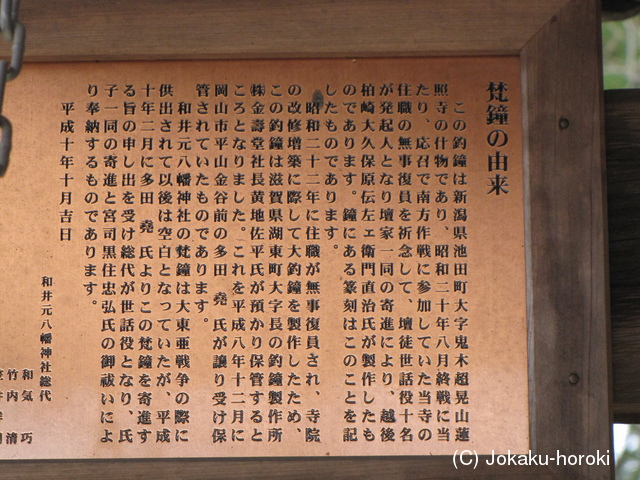 梵鐘の由来
この釣鐘は新潟県池田町大字鬼木超晃山蓮
照寺の什物であり、昭和二十年八月終戦に当
たり、応召で南方作戦に参加していた当寺の
住職の無事復員を祈念して、壇徒世話役十名
が発起人となり壇家一同の寄進により、越後
柏崎大久保原伝左ェ衛門直治氏が製作したも
のであります。鐘にある篆刻はこのことを記
したものであります。
昭和二十二年に住職が無事復員され、寺院
の改修増築に際して大釣鐘を製作したため、
この釣鐘は滋賀県湖東町大字長の釣鐘製作所
㈱金壽堂社長黄地佐平氏が預かり保管すると
ころとなりました。これを平成八年十二月に
岡山市平山金谷前の多田 堯氏が譲り受け保
管されていたものであります。
和井元八幡神社の梵鐘は大東亜戦争の際に
供出されて以後は空白となっていたが、平成
十年二月に多田 堯氏よりこの梵鐘を寄進す
る旨の申し出を受け総代が世話役となり、氏
子一同の寄進と宮司黒住忠弘氏の御祓いによ
り奉納するものであります。
平成十年十月吉日
和井元八幡神社総代
和気 巧
竹内 清
(C) Jokaku-horoki